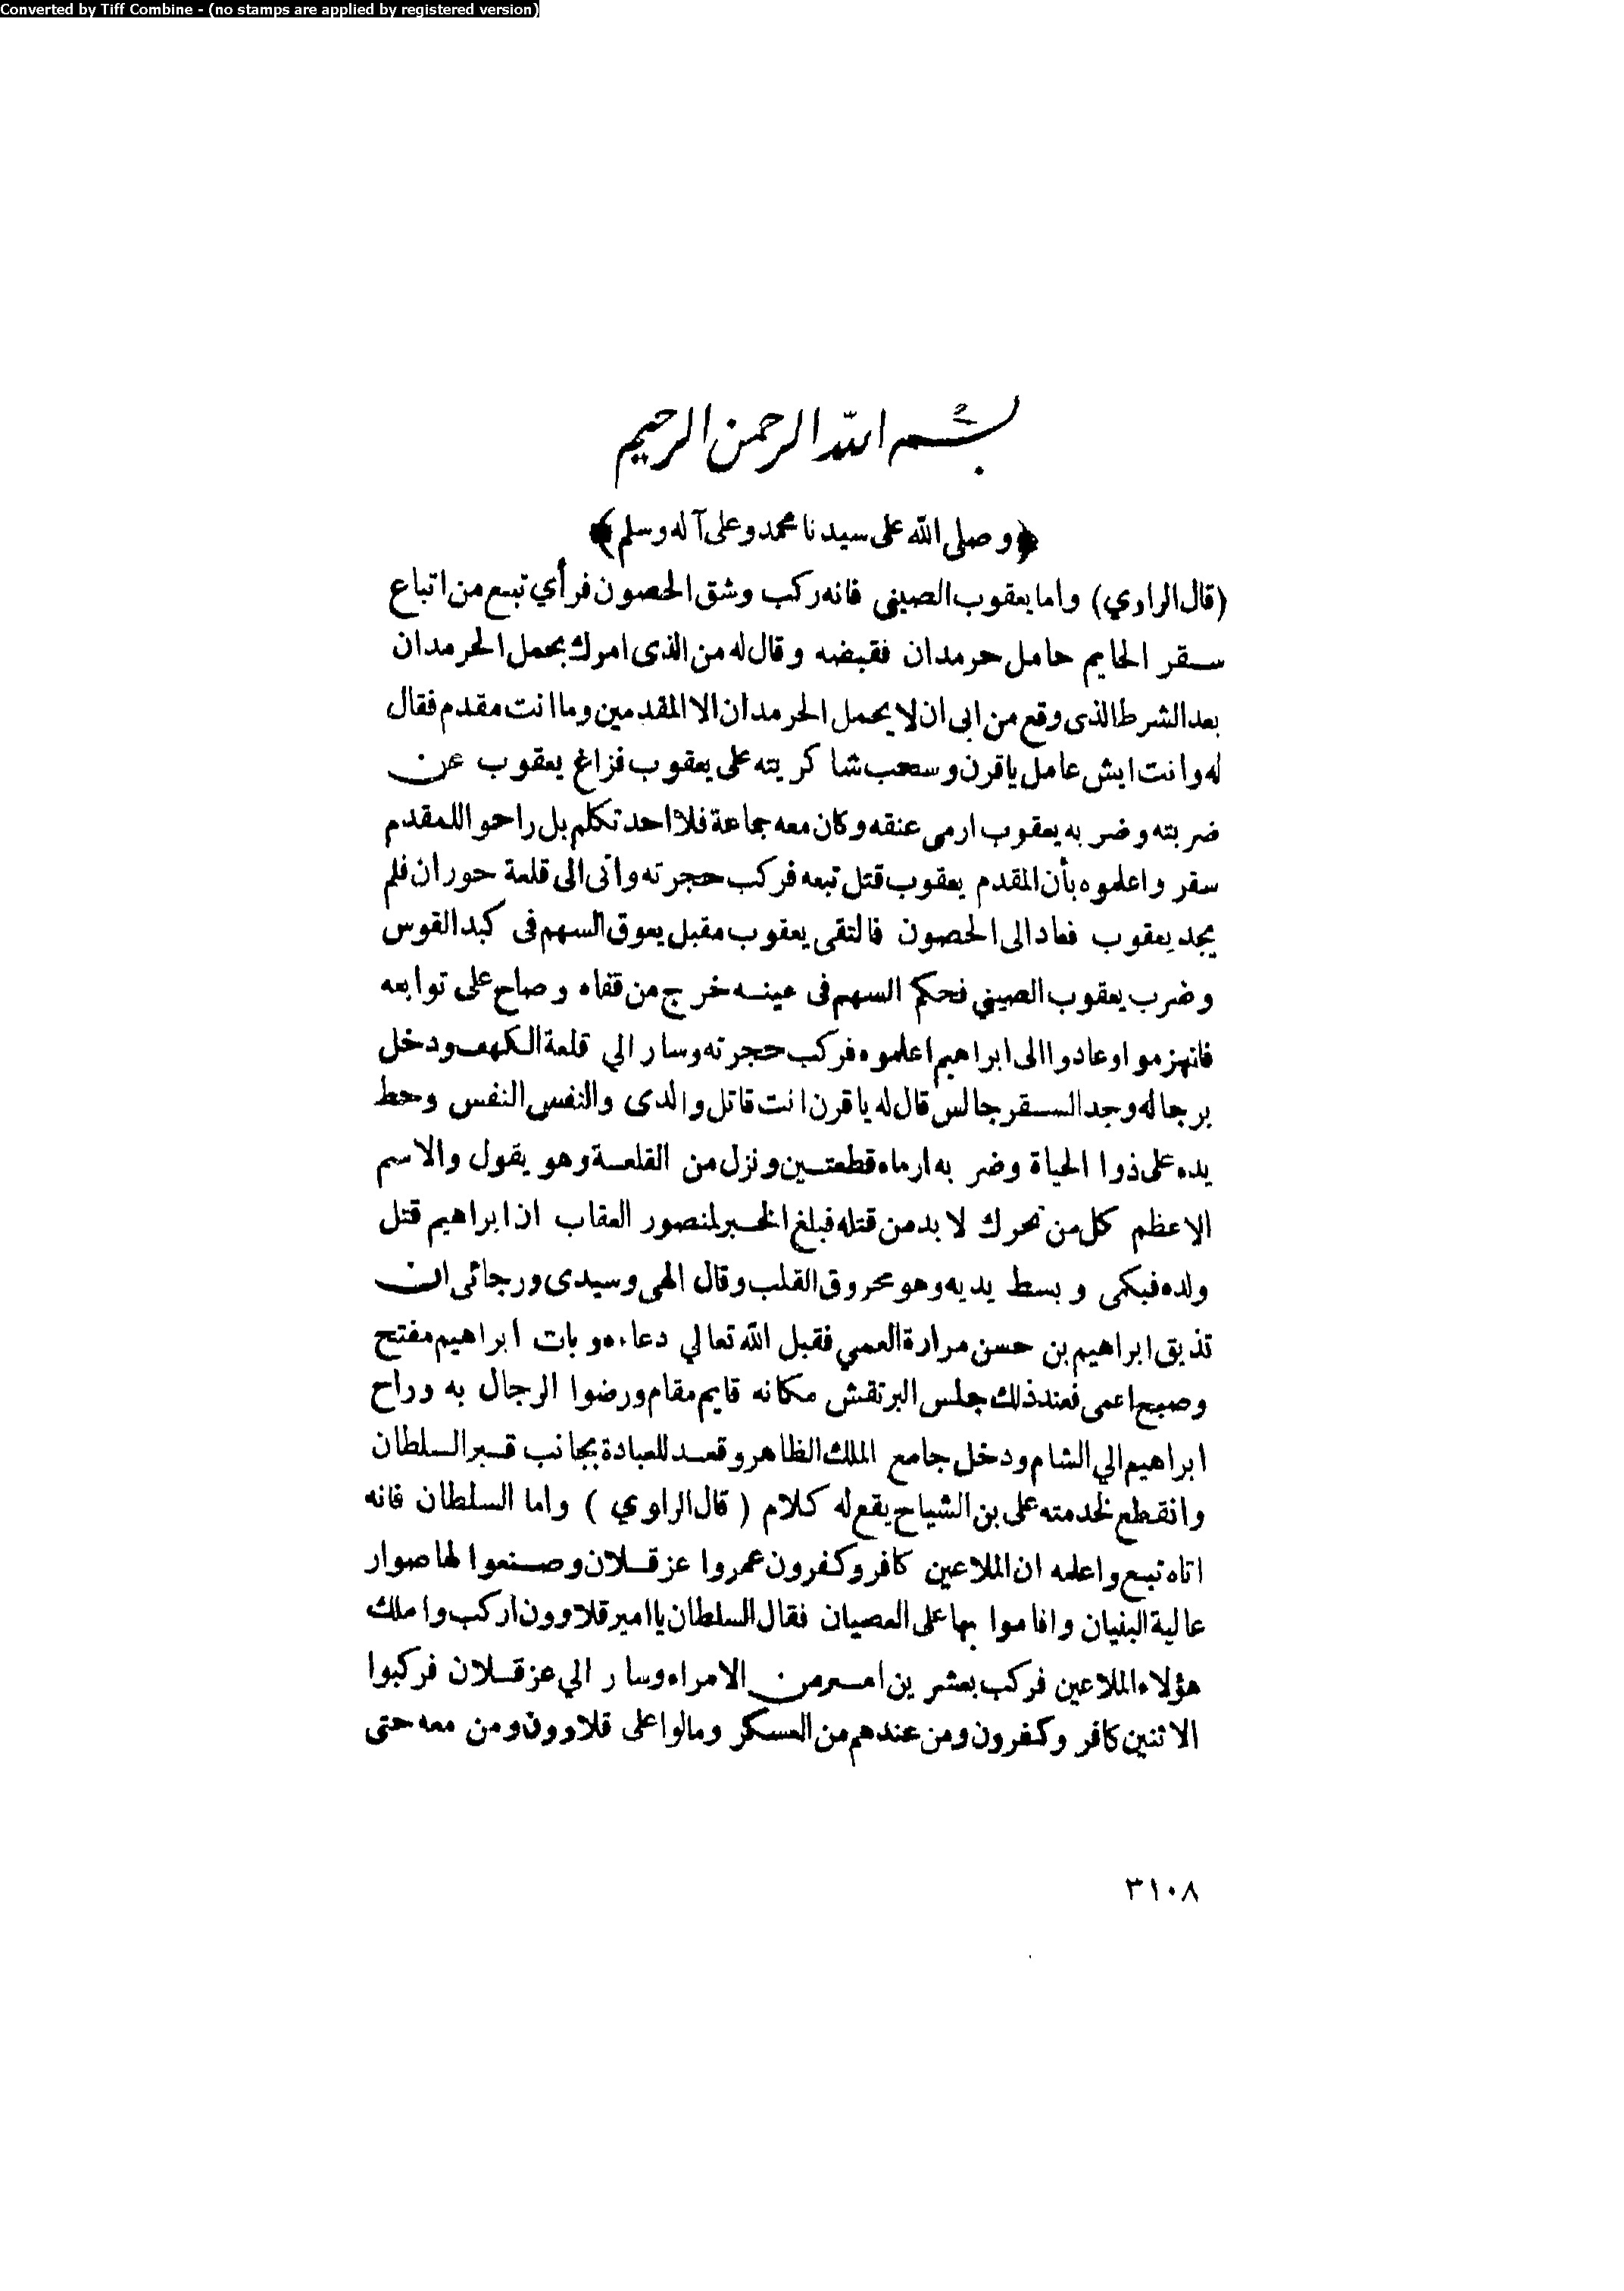 Converted by Tiff Combine - (no stamps are applied by registered version)
بسم الله الرحمن الرحيم
﴿وصلى الله على سيدنا محمد وعلى آله وسلم﴾
(قال الراوي) واما يعقوب الصيني فانه ركب وشق الحصون فرأي تبع من اتباع
سقر الحايم حامل حرمدان فقبضه وقال له من الذى امرك بحمل الحرمدان
بعد الشرط الذى وقع من ابى ان لا يحمل الحرمدان الا المقدمين وما انت مقدم فقال
له وانت ايش عامل ياقرن وسحب شاكريته على يعقوب فزاغ يعقوب عن
ضربته وضربه يعقوب ارمى عنقه وكان معه جماعة فلا احد تكلم بل راحوا للمقدم
سقر واعلموه بأن المقدم يعقوب قتل تبعه فركب حجرته واتى الى قلعة حوران فلم
يجد يعقوب فعاد الى الحصون فالتقى يعقوب مقبل يعوق السهم فى كبد القوس
وضرب يعقوب الصيني فحكم السهم فى عينه خرج من قفاه وصاح على توابعه
فانهزموا وعادوا الى ابراهيم اعلموه فركب حجرته وسار الي قلعة الكهف ودخل
برجاله وجد السقر جالس قال له ياقرن انت قاتل والدى والنفس النفس وحط
يده على ذوا الحياة وضربه ارماه قطعتين ونزل من القلعة وهو يقول والاسم
الاعظم كل من تحرك لا بد من قتله فبلغ الخبر لمنصور العقاب ان ابراهيم قتل
ولده فبكى وبسط يديه وهو محروق القلب وقال الهى وسيدى ورجائى ان
تذيق ابراهيم بن حسن مرارة العمي فقبل الله تعالي دعاءه وبات ابراهيم مفتح
وصبح اعمى فعند ذلك جلس البرتقش مكانه قايم مقام ورضوا الرجال به وراح
ابراهيم الي الشام ودخل جامع الملك الظاهر وقعد للعبادة بجانب قبر السلطان
وانقطع لخدمته على بن الشياح يقع له كلام (قال الراوي) واما السلطان فانه
اتاه تبع واعلمه ان الملاعين كافر وكفرون عمروا عزقلان وصنعوا لها صوار
عالية البنيان واقاموا بها على العصيان فقال السلطان ياامير قلاوون اركب واملك
هؤلاء الملاعين فركب بعشرين امير من الامراء وسار الي عزقلان فركبوا
الاثنين كافر وكفرون ومن عندهم من العسكر ومالوا على قلاوون ومن معه حتى
٣١٠٨